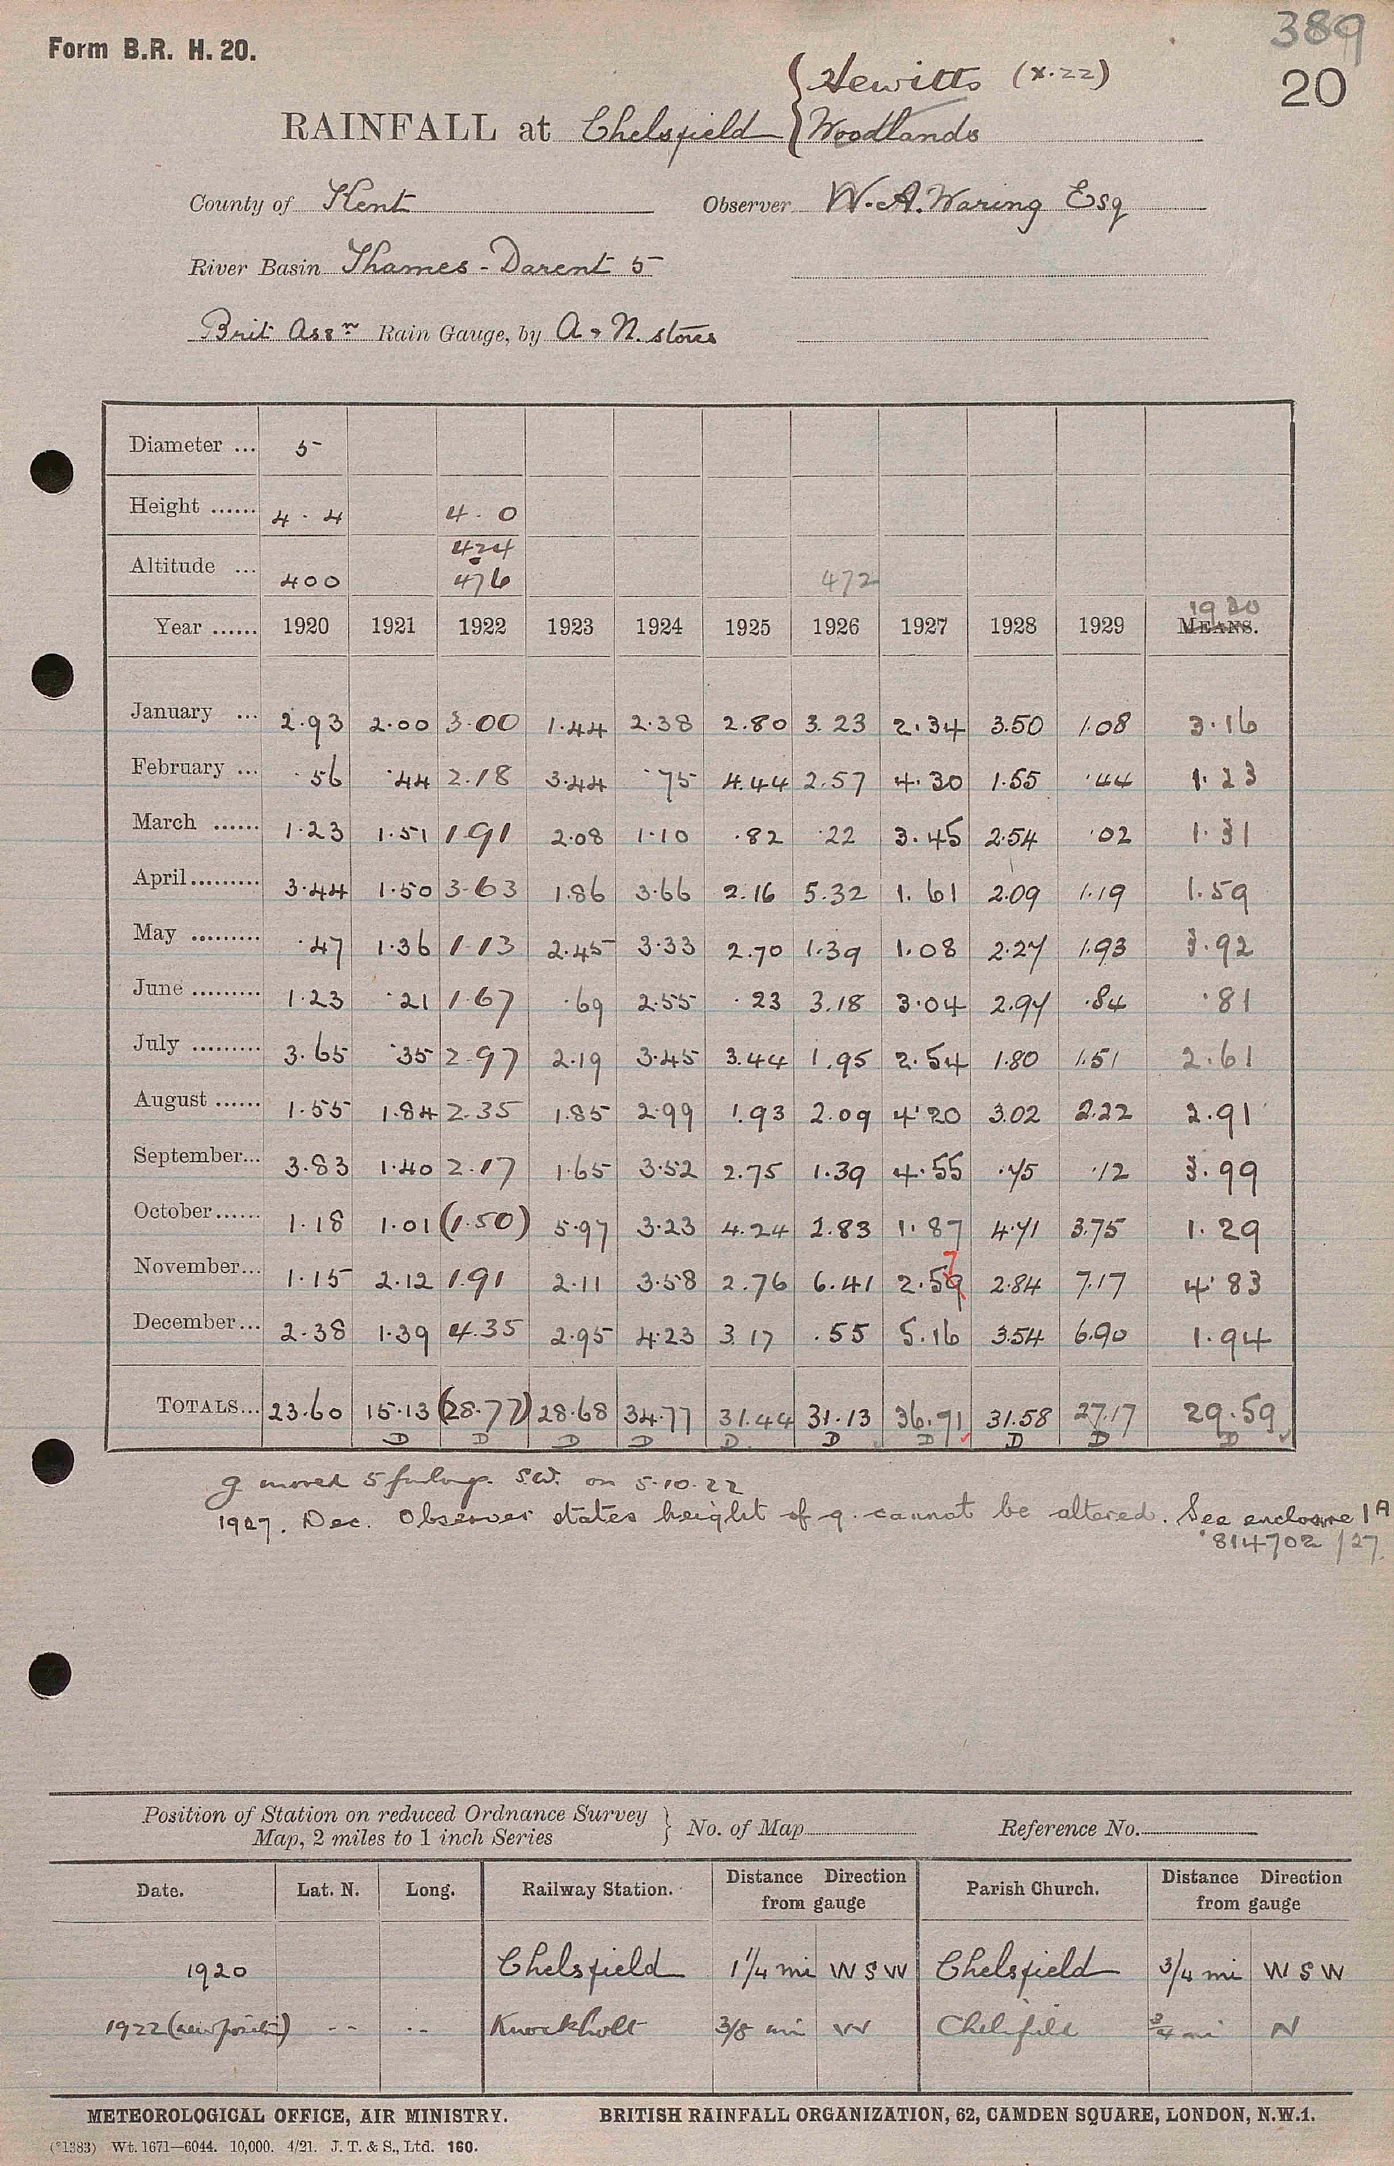 389
Form B.R. H. 20.
20
Hewitts (x.22)
RAINFALL at Chelsfield { Woodlands
County of Kent Observer W. A. Waring Esq
River Basin Thames - Darent 5
Brit Assn Rain Gauge, by A & N. stores
Diameter ... 5
Height ...... 4 . 4 4 . 0
424
Altitude ... 400 476 472
1930
Year ...... 1920 1921 1922 1923 1924 1925 1926 1927 1928 1929 MEANS.
January ... 2.93 2.00 3.00 1.44 2.38 2.80 3.23 2.34 3.50 1.08 3.16
February ... .56 .44 2.18 3.44 .75 4.44 2.57 4.30 1.55 .44 1.23
March ...... 1.23 1.51 1.91 2.08 1.10 .82 .22 3.45 2.54 .02 1.31
April......... 3.44 1.50 3.63 1.86 3.66 2.16 5.32 1.61 2.09 1.19 1.59
May ......... .47 1.36 1.13 2.45 3.33 2.70 1.39 1.08 2.27 1.93 3.92
June ......... 1.23 .21 1.67 .69 2.55 .23 3.18 3.04 2.97 .84 .81
July ......... 3.65 .35 2.97 2.19 3.45 3.44 1.95 2.54 1.80 1.51 2.61
August ...... 1.55 1.84 2.35 1.85 2.99 1.93 2.09 4.20 3.02 2.22 2.91
September... 3.83 1.40 2.17 1.65 3.52 2.75 1.39 4.55 .75 .12 3.99
October...... 1.18 1.01 (1.50) 5.97 3.23 4.24 2.83 1.87 4.71 3.75 1.29
7
November... 1.15 2.12 1.91 2.11 3.58 2.76 6.41 2.59 2.84 7.17 4.83
December... 2.38 1.39 4.35 2.95 4.23 3.17 .55 5.16 3.54 6.90 1.94
TOTALS... 23.60 15.13 (28.77) 28.68 34.77 31.44 31.13 36.91 31.58 27.17 29.59
D D D D D D D D D D
g moved 5 furlongs. S.W. on 5.10.22
1927. Dec. Observer states height of g. cannot be altered. See enclosure 1A
814702 /27.
Position of Station on reduced Ordnance Survey
Map, 2 miles to 1 inch Series } No. of Map Reference No.
Date. Lat. N. Long. Railway Station. Distance Direction from gauge Parish Church. Distance Direction from gauge
1920 Chelsfield 1 1/4 mi W S W Chelsfield 3/4 mi W S W
1922 (new position) -- -- Knockholt 3/8 mi W Chelsfield 3/4 mi N
METEOROLOGICAL OFFICE, AIR MINISTRY. BRITISH RAINFALL ORGANIZATION, 62, CAMDEN SQUARE, LONDON, N.W.1.
(*1383) Wt. 1671—6044. 10,000. 4/21. J. T. & S., Ltd. 160.